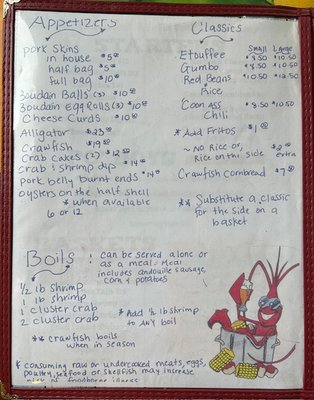 Appetizers
Pork Skins
in house $5⁰⁰
half bag $5⁰⁰
full bag $10⁰⁰
Boudain Balls (3) $10⁰⁰
Boudain Egg Rolls (3) $10⁰⁰
Cheese Curds $10⁰⁰
Alligator $23⁰⁰
Crawfish $19⁰⁰
Crab Cakes (2) $12⁵⁰
crab & shrimp dip $14⁰⁰
Pork belly burnt ends $14⁰⁰
oysters on the half shell
* when available
6 or 12
Classics
Small Large
Etouffee $10⁵⁰
Gumbo $10⁵⁰
Red Beans $10.50 $12.50
Rice
Coon Ass $10⁵⁰
Chili
* Add Fritos $1⁰⁰
~ No Rice or,
Rice on the side extra
Crawfish Cornbread
** Substitute a classic
for the side on a
basket
Boils
: Can be served alone or
as a meal. Meal
includes andouille sausage,
corn & potatoes
½ lb shrimp
1 lb shrimp
1 cluster crab
2 cluster crab
* Add ½ lb shrimp
to ANY boil
** crawfish boils
when in season
* consuming raw or undercooked meats, eggs,
poultry, seafood or shellfish may increase
foodborne illness